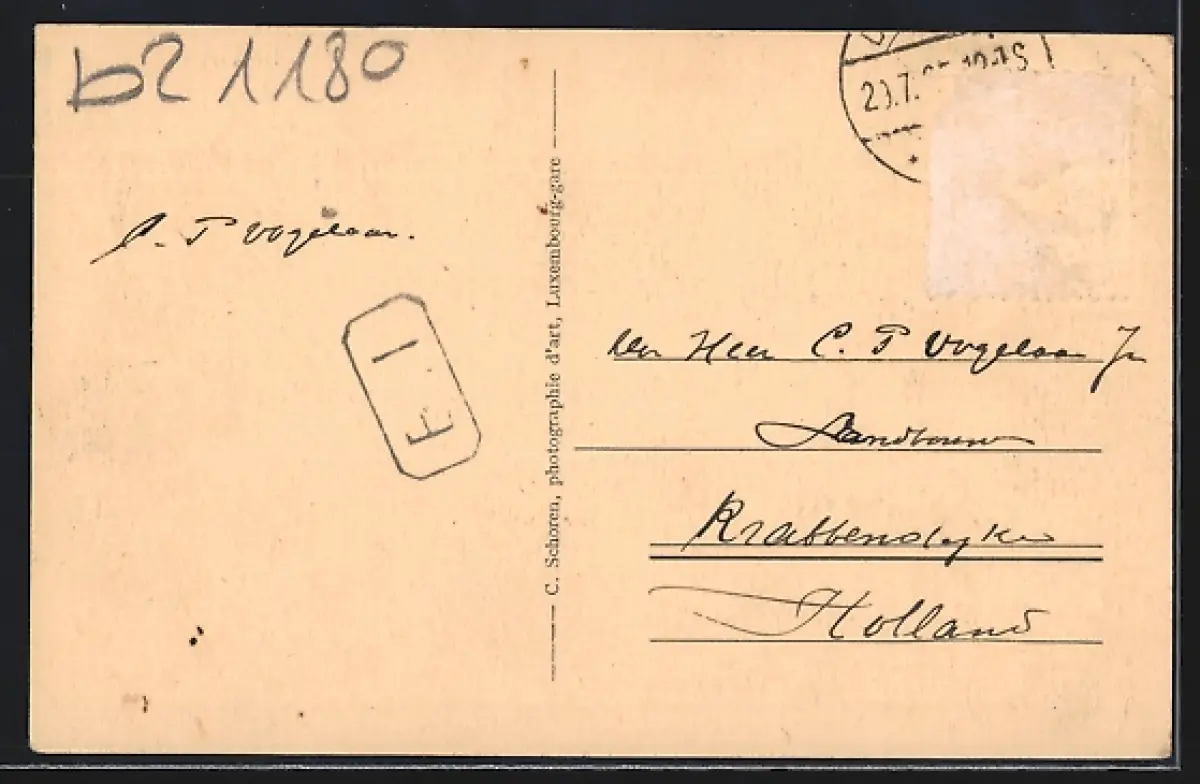 bz 1180
20.7. 10-15
C. P Vogelaar.
F. 1
C. Schoren, photographie d'art, Luxembourg-gare
Den Heer C. P Vogelaar Jr
Landbouwer
Krabbendijke
Holland